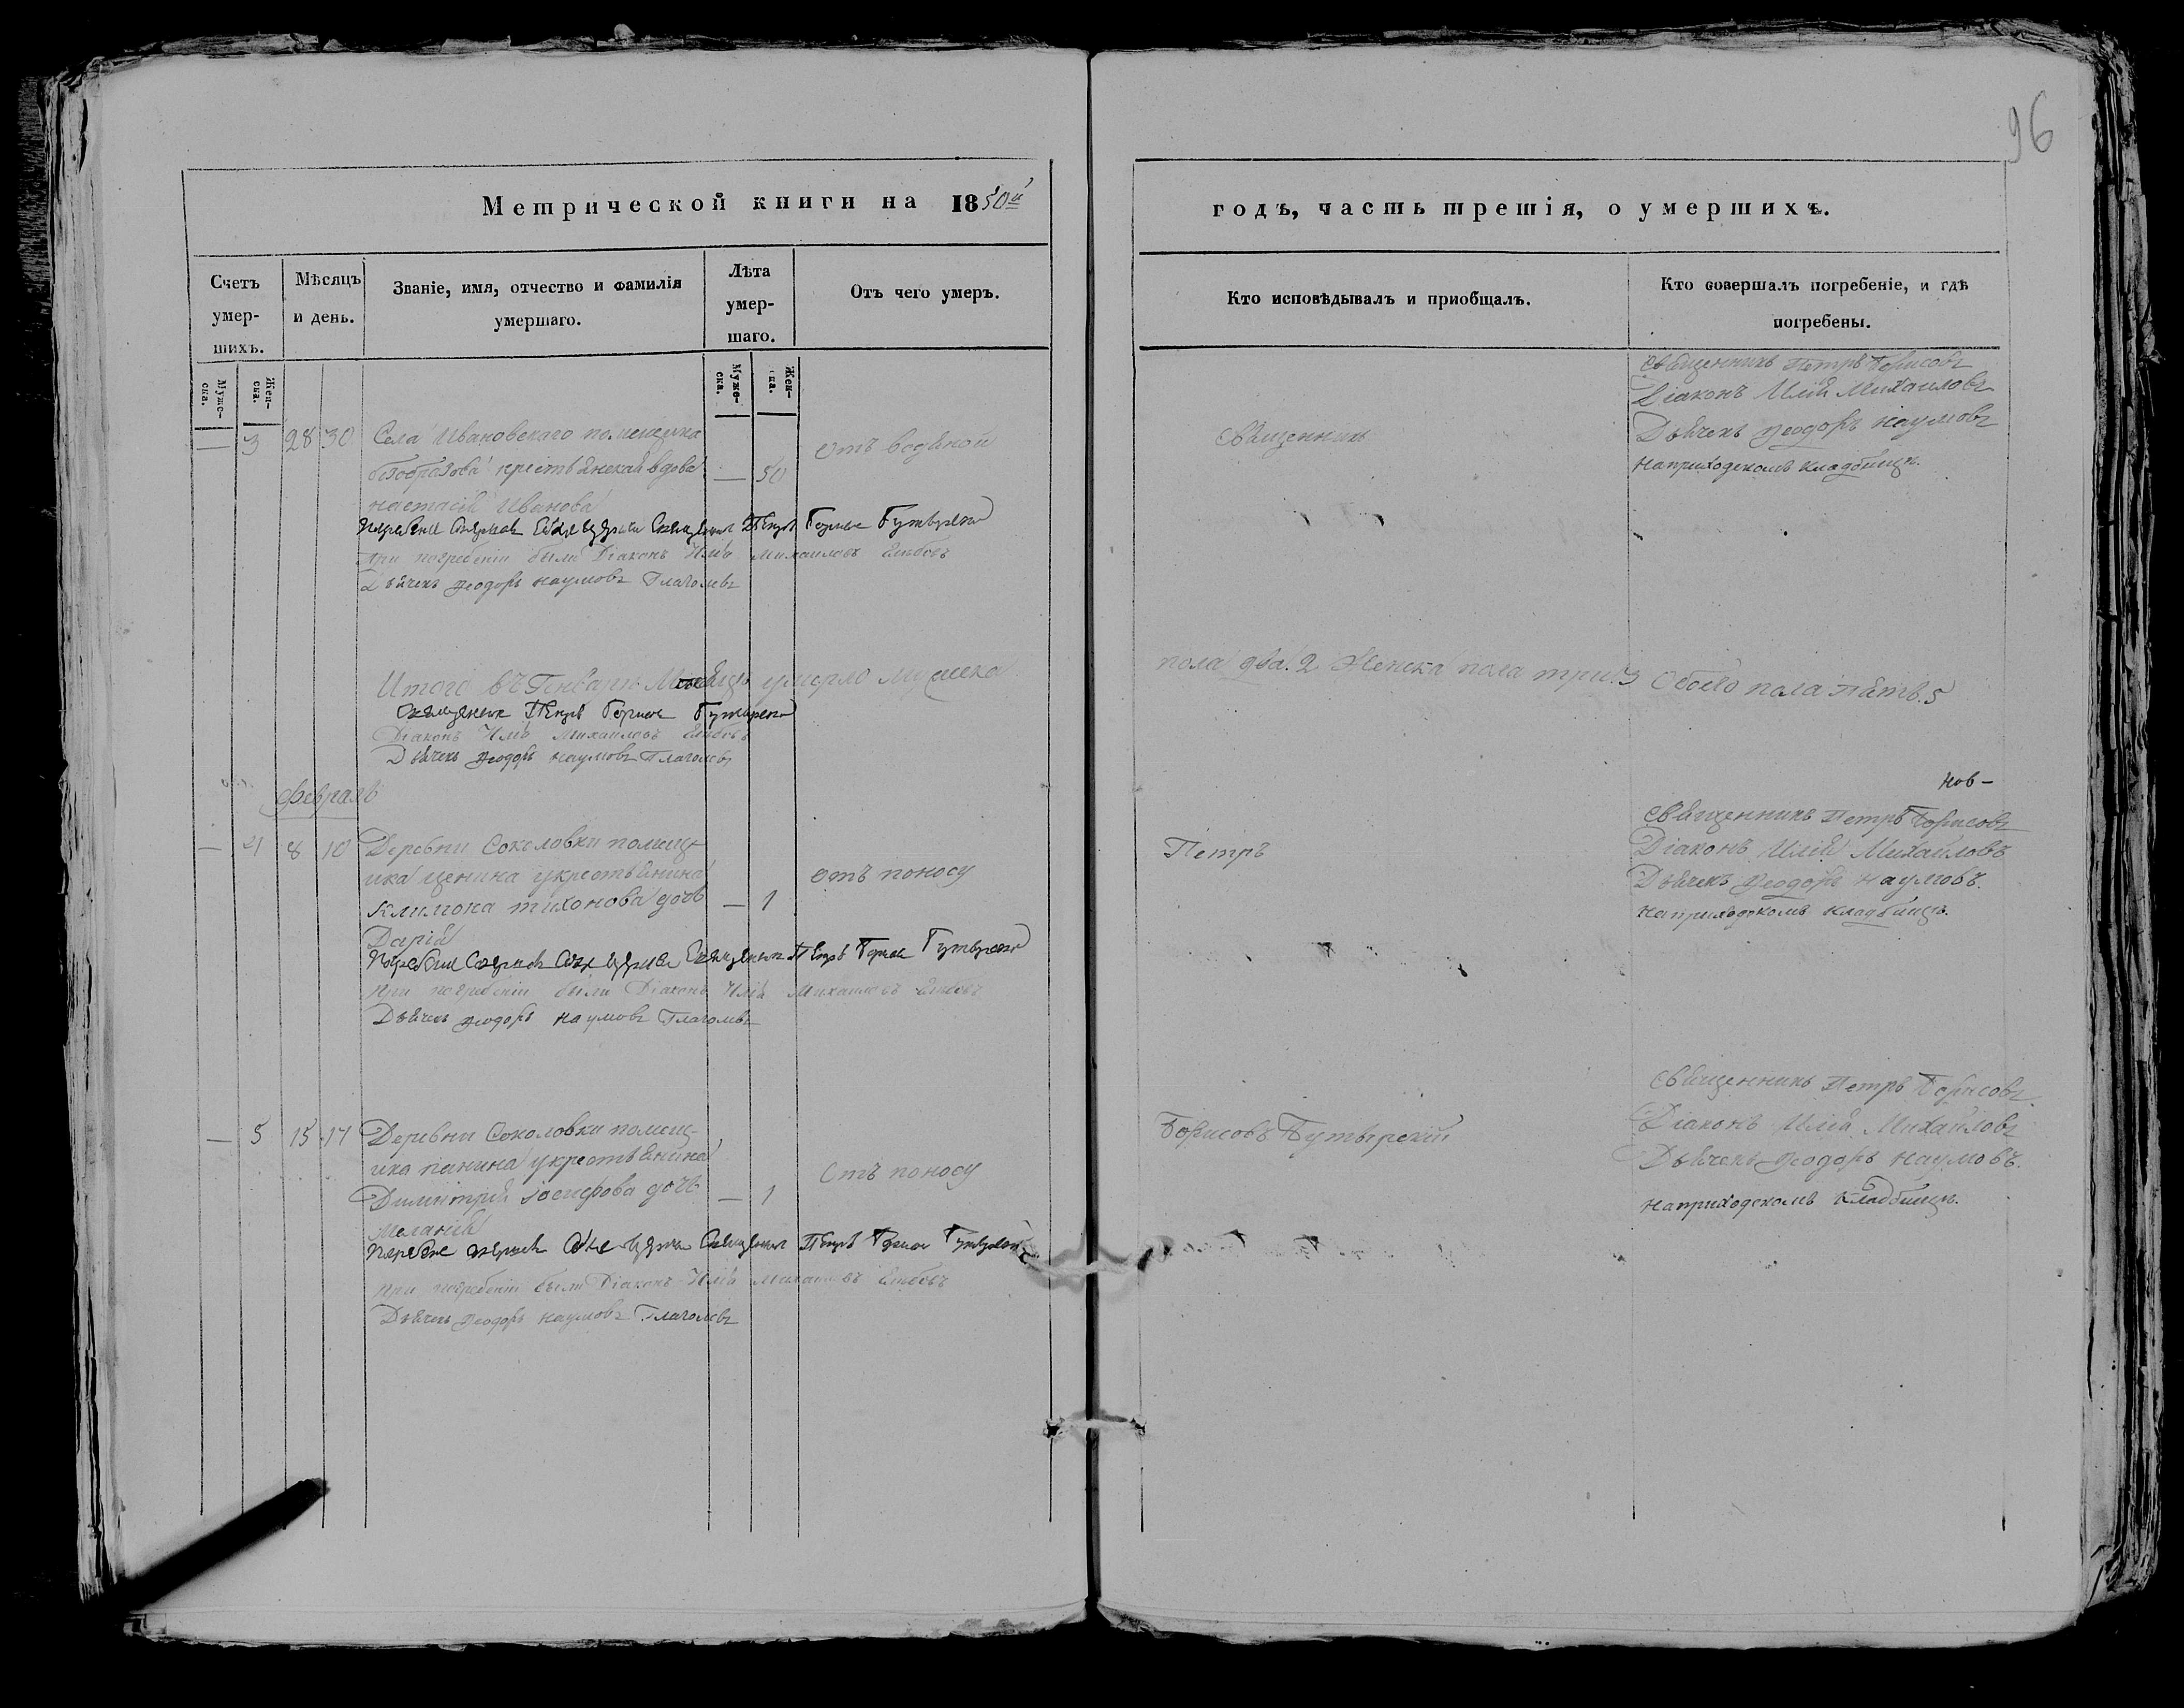 96
Метрической книги на 1850й
годъ, часть третія, о умершихъ.
Счетъ умер-шихъ.
Мѣсяцъ и день.
Званіе, имя, отчество и фамилія умершаго.
Лѣта умер-шаго.
Отъ чего умеръ.
Кто исповѣдывалъ и приобщалъ.
Кто совершалъ погребеніе, и гдѣ погребены.
Муже-ска.
Жен-ска.
Муже-ска.
Жен-ска.
— 3 28 30 Села Ивановскаго помещика
крестьянская вдова — 50
настасія Иванова
отъ водяной
Священникъ
Священникъ Петръ Борисовъ
Діаконъ Илія Михаиловъ
Дьячекъ Феодоръ Наумовъ
на приходскомъ кладбищѣ.
Священникъ Петръ Борисов
при погребеніи были Діаконъ Илія Михаиловъ
Дьячекъ Феодоръ Наумовъ Глаголевъ
Итого въ Генваре месяце умерло мужеска
пола два. 2 Женска пола три. 3 Обоего пола пять. 5
Священник Петръ Борисов
Діаконъ Илія Михаиловъ
Дьячекъ Феодоръ Наумовъ Глаголевъ
Февраль
— 4 8 10 Деревни Соколовки помещ-
ика крестьянина
тихонова дочь — 1
Дарія
отъ поносу
Петръ
нов-
Священникъ Петръ Борисовъ
Діаконъ Илія Михаиловъ
Дьячекъ Феодоръ Наумовъ.
на приходскомъ кладбищѣ.
Священник Петръ Борисов
при погребеніи были Діаконъ Илія Михаиловъ
Дьячекъ Феодоръ Наумовъ Глаголевъ
— 5 15 17 Деревни Соколовки помещ-
ика панина у крестьянина
Димитрія іосифова дочь — 1
Меланія
Отъ поносу
Борисовъ Бутырскій
Священникъ Петръ Борисовъ.
Діаконъ Илія Михаиловъ
Дьячекъ Феодоръ Наумовъ.
на приходскомъ кладбищѣ.
Священник Петръ Борисов
при погребеніи были Діаконъ Илія Михаиловъ
Дьячекъ Феодоръ Наумовъ Глаголевъ